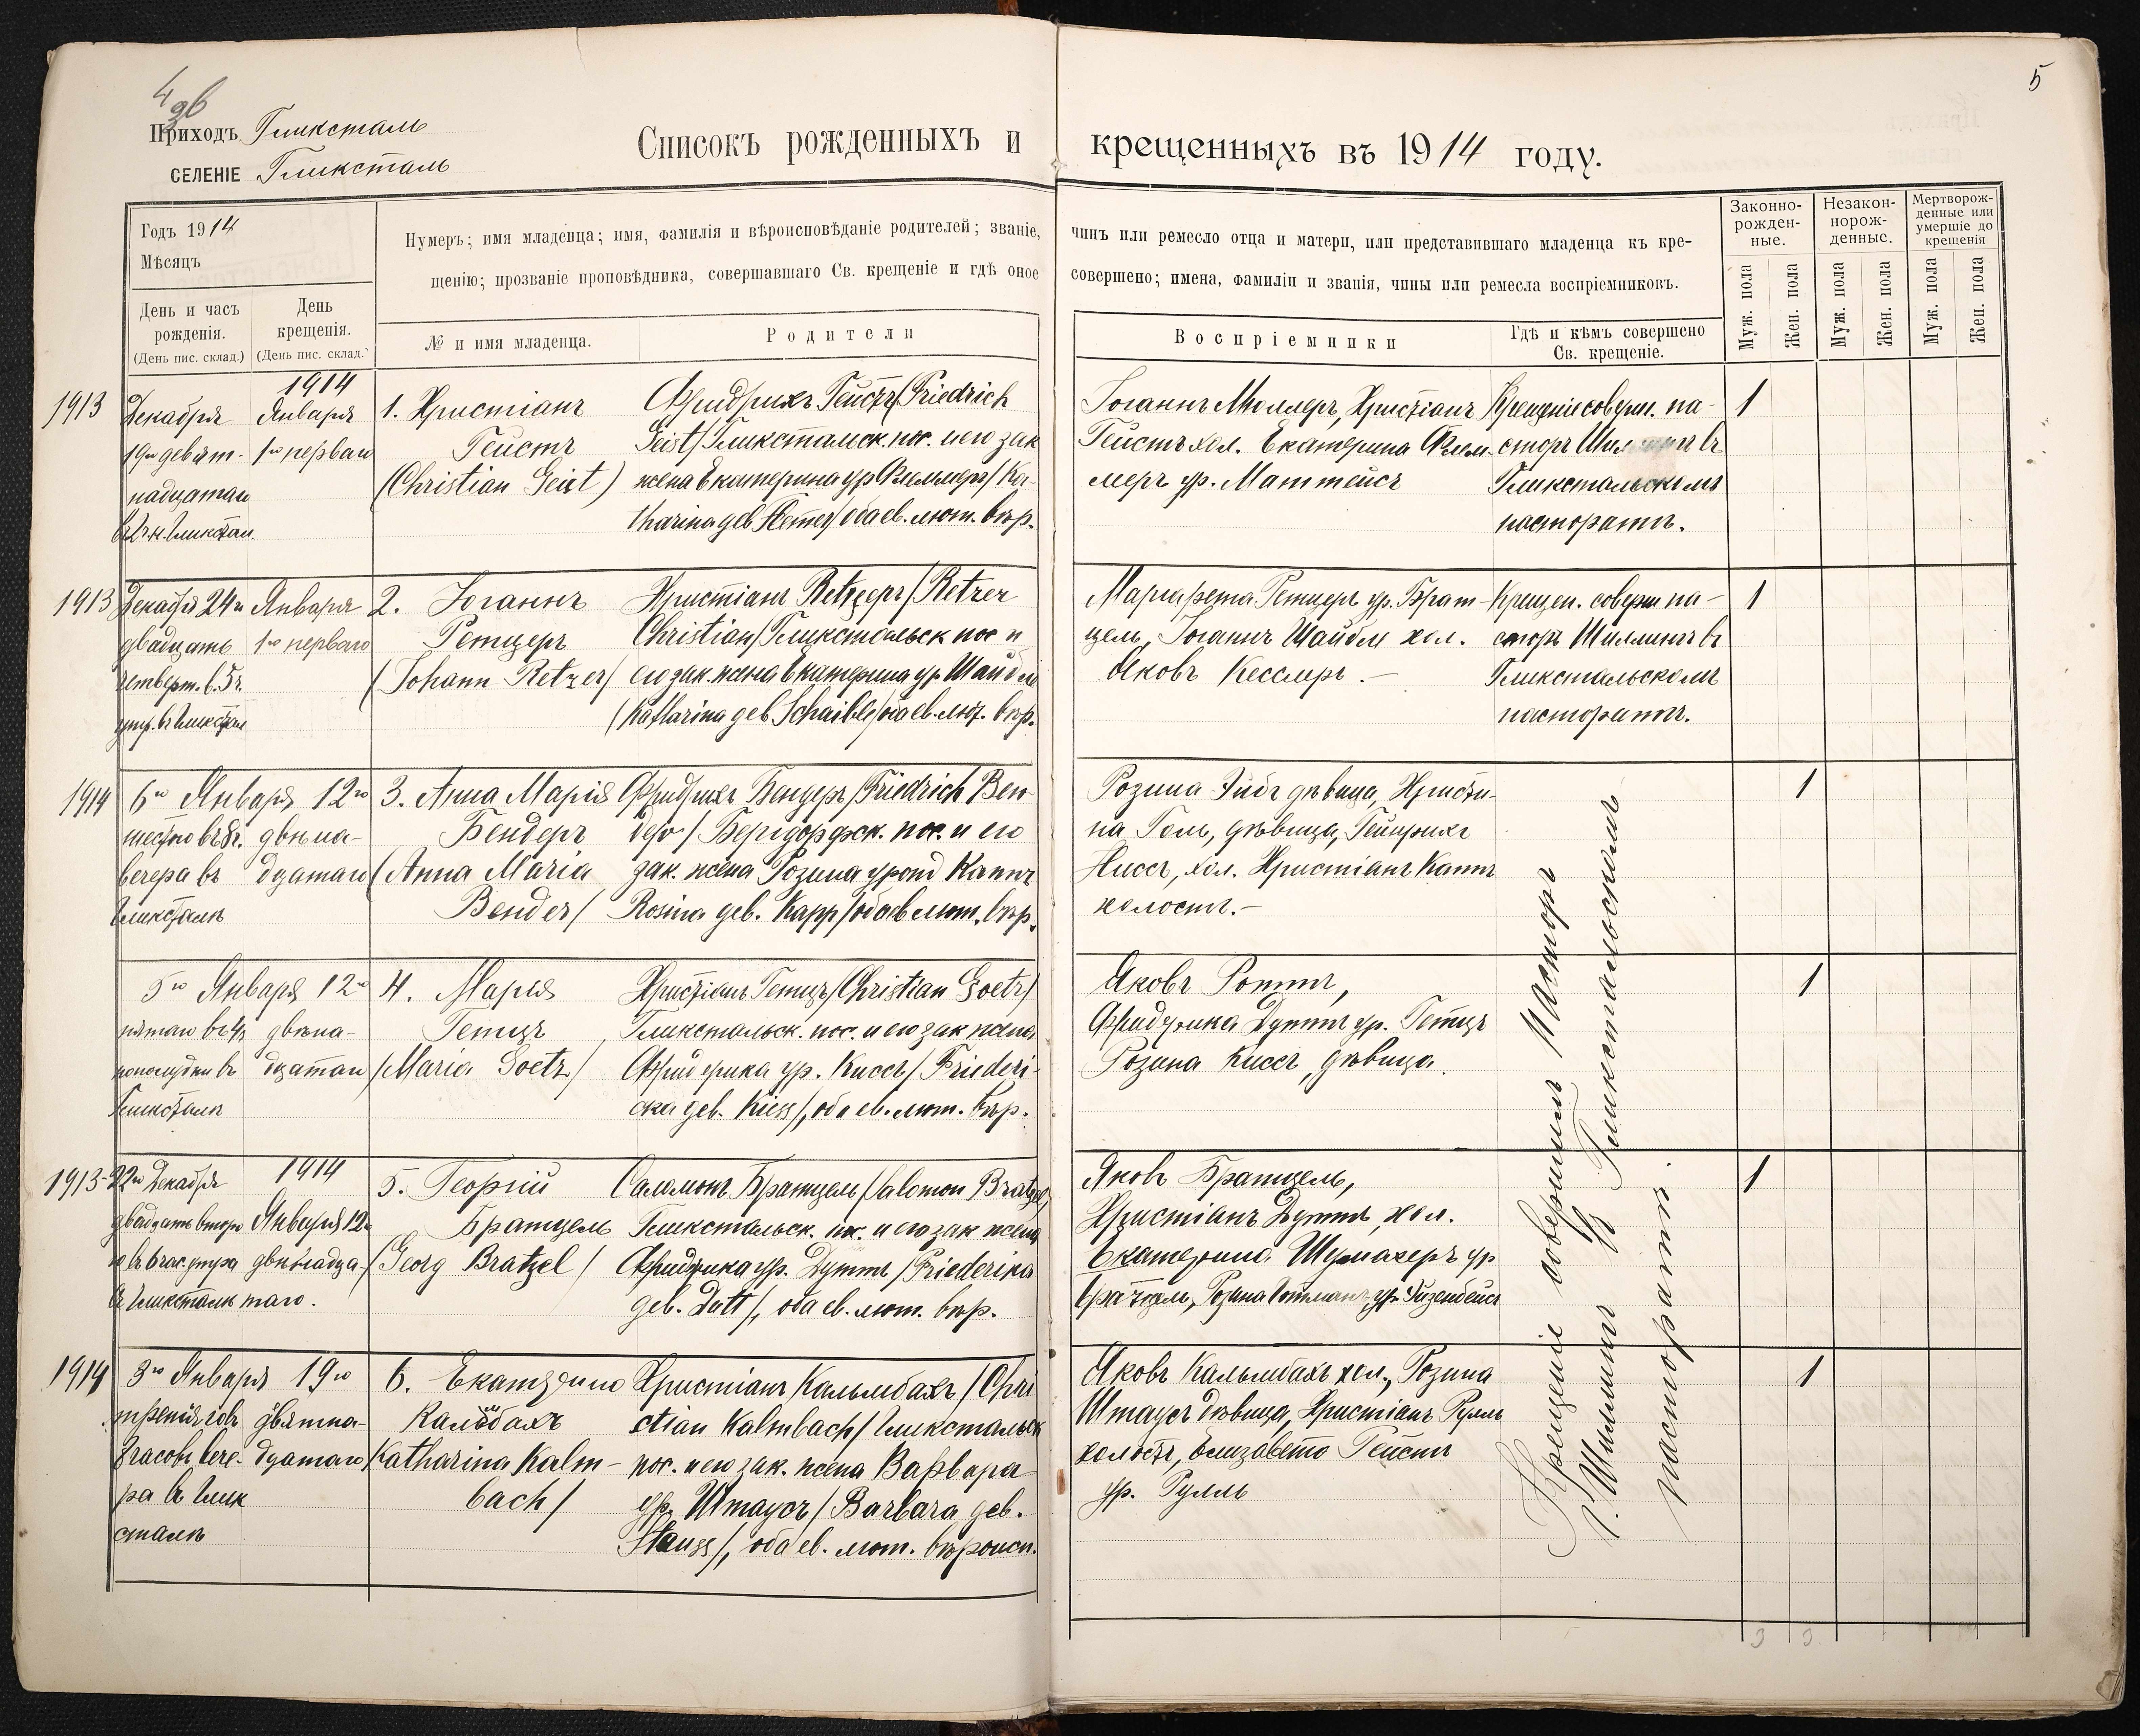 4
5
Приходъ Гликсталь
СЕЛЕНІЕ Гликсталь
Списокъ рожденныхъ и крещенныхъ въ 1914 году.
Годъ 1914
Мѣсяцъ
День и часъ рожденія.
(День пис. склад.)
День крещенія.
(День пис. склад.)
Нумеръ; имя младенца; имя, фамилія и вѣроисповѣданіе родителей; званіе, чинъ или ремесло отца и матери, или представившаго младенца къ кре-
щенію; прозваніе проповѣдника, совершавшаго Св. крещеніе и гдѣ оное совершено; имена, фамиліи и званія, чины или ремесла воспріемниковъ.
№ и имя младенца.
Родители
Воспріемники
Гдѣ и кѣмъ совершено
Св. крещеніе.
Законно-
рожден-
ные.
Незакон-
норож-
денные.
Мертворож-
денные или
умершіе до
крещенія
Муж. пола
Жен. пола
Муж. пола
Жен. пола
Муж. пола
Жен. пола
1913
Декабря
19го девят-
надцатаго
1914
Января
1го перваго
1. Христіанъ
Гейстъ
(Christian Geist)
Фридрихъ Гейстъ/Friedrich
Geist/Гликстальск. пос. и его зак
жена Екатерина ур Флеммеръ/Ka-
tharina geb Flemer/оба ев. лют. вѣр.
Іоганнъ Мюллеръ, Христіанъ
Гейстъ хол. Екатерина Флем-
меръ ур. Маттейсъ
Крещеніе соверш. па-
сторъ въ
Гликстальскомъ
пасторатѣ.
1
1913
Декабря 24го
двадцать
четверт. в. 5ч.
утр. въ Гликсталѣ
Января
1го перваго
2. Іоганнъ
Ретцеръ
/Johann Retzer/
Христіанъ Ретцеръ/Retzer
Christian/Гликстальск пос и
его зак. жена Екатерина ур Шайбле
/Katharina geb Schaible/оба ев. лют. вѣр.
Маргарета Ретцеръ ур. Брат-
цель, Іоганнъ Шайбле хол.
Яковъ Кесслеръ.—
Крещен. соверш па-
сторъ Шиллингъ въ
Гликстальскомъ
пасторатѣ.
1
1914
6го Января
шестого въ 8ч.
вечера въ
Гликсталѣ
12го
двѣна-
дцатаго
3. Анна Марія
Бендеръ
(Anna Maria
Bender/
Фридрихъ Бендеръ/Friedrich Ben-
der/Бергдорфск. пос. и его
зак. жена Розина урожд Каппъ
Rosina geb. Kapp/оба ев лют. вѣр.
Розина дѣвица, Христи-
на Голь, дѣвица, Гейнрихъ
Ниссъ, хол. Христіанъ Каппъ
холостъ.—
1
5го Января
пятаго
пополудни въ
Гликсталѣ
12го
двѣна-
дцатаго
4. Марія
Гетцъ
/Maria Goetz/
Христіанъ Гетцъ/Christian Goetz/
Гликстальск. пос. и его зак жена
Фридерика ур. Киссъ/Friederi-
cka geb. Kiess/, оба ев. лют. вѣр.
Яковъ Роттъ,
Фридерика Дуттъ ур. Гетцъ
Розина Киссъ, дѣвица.
1
1913
22го Декабря
двадцать второ-
го въ 6 час. утра
въ Гликсталѣ
1914
Января 12го
двѣнадца-
таго.
5. Георгій
Братцель
/Georg Bratzel/
Саломонъ Братцель/Salomon Bratzel,
Гликстальск. пос. и его зак жена
Фридерика ур. Дуттъ/Friederika
geb. Dutt/, оба ев. лют. вѣр.
Яковъ Братцель,
Христіанъ Дуттъ, хол.
Екатерина Шумахеръ ур
Братцель, Розина ур. Эйзенбейсъ
1
1914
3го Января
третія го въ
часовъ вече-
ра въ Глик
сталѣ
19го
девятна-
дцатаго
6. Екатерина
Кальмбахъ
/Katharina Kalm-
bach/
Христіанъ Кальмбахъ/Chri
stian Kalmbach/Гликстальск
пос. и его зак. жена Варвара
ур. Штаусъ/Barbara geb.
Stauss/, оба ев. лют. вѣроисп.
Яковъ Кальмбахъ хол., Розина
Штаусъ дѣвица, Христіанъ Рулль
холостъ, Елизавета Гейстъ
ур. Рулль
1
Крещеніе совершилъ пасторъ
Г. Шиллингъ въ Гликстальскомъ
пасторатѣ.
3
3